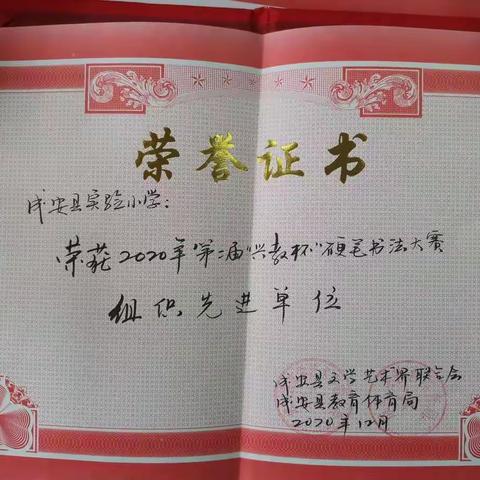 荣誉证书
成安县实验小学：
荣获2020年"第二届"兴教杯"硬笔书法大赛
组织先进单位
成安县文学艺术界联合会
成安县教育体育局
2020年12月